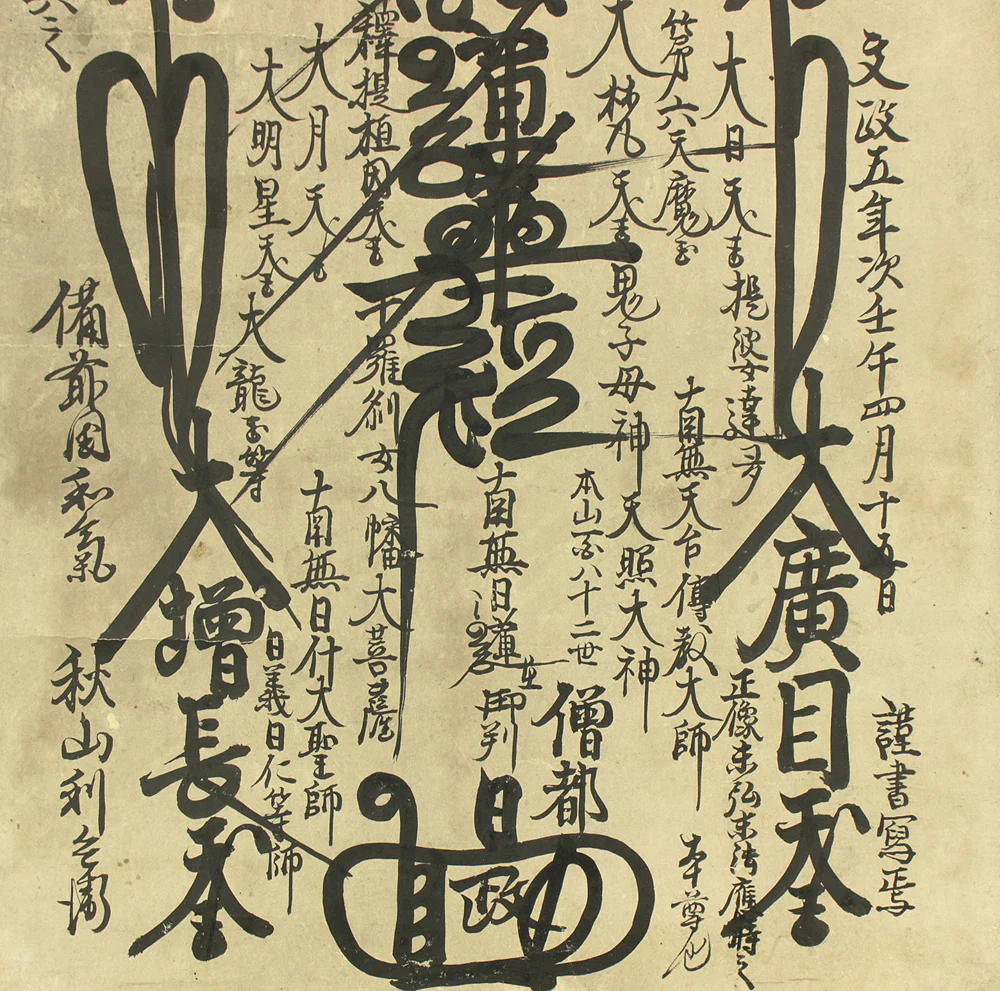 文政五年次壬午四月十五日
謹書寫焉
大廣目天玉
大日天王
提婆達多
第六天魔王
南無天台傳教大師
正像未弘末法應時之
本尊也
大梵天王
鬼子母神
天照大神
本山百八十二世
僧都
日政
蓮華経
南無日蓮
在御判
釋提桓因天王
十羅刹女
八幡大菩薩
大月天王
南無日什大聖師
日義日仁等師
大明星天王
大龍王等
大增長天玉
備前国和氣
秋山利兵衛